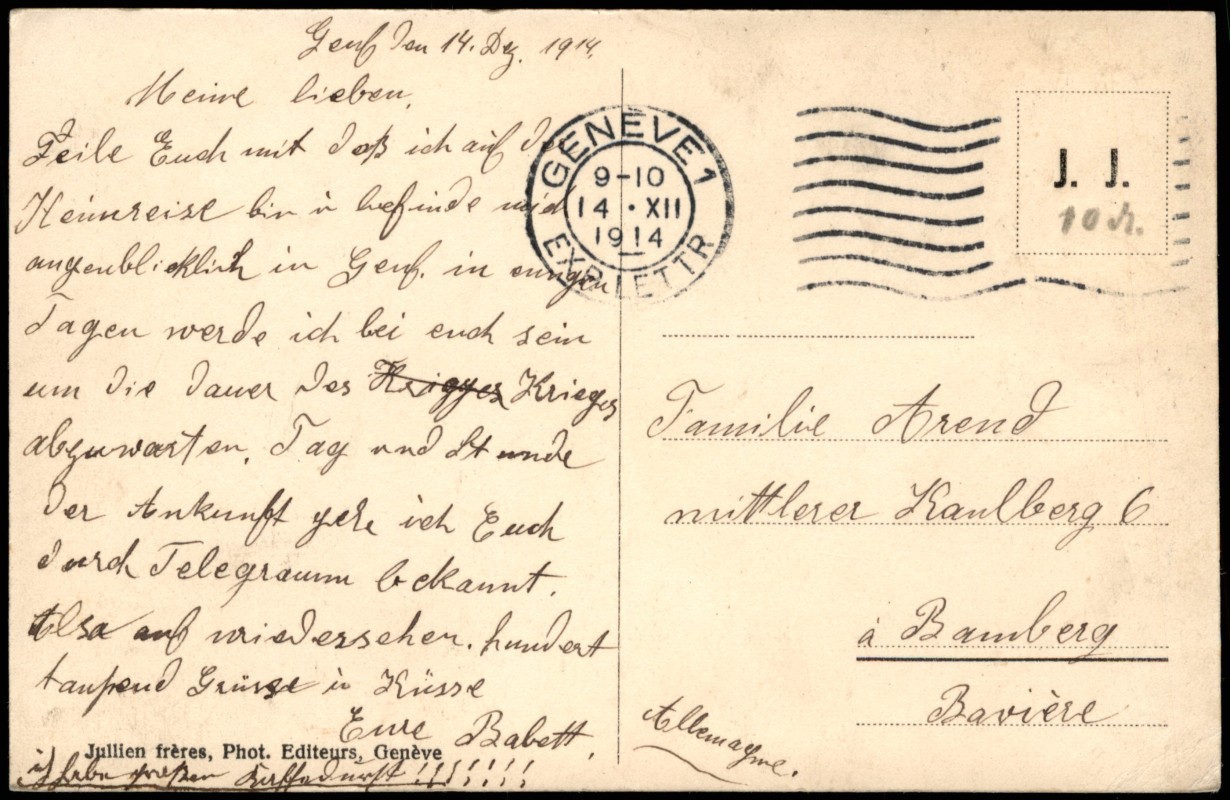 Genf den 14. Dez. 1914.
Meine lieben,
Teile Euch mit daß ich auf der
Heimreise bin u befinde mich
augenblicklich in Genf. in einigen
Tagen werde ich bei euch sein
um die dauer des Krieges
abzuwarten. Tag und Stunde
der Ankunft gebe ich Euch
durch Telegramm bekannt.
Also auf wiedersehen. hundert
tausend Grüsse u Küsse
Eure Babett.
Jullien frères, Phot. Editeurs, Genève
ich habe großen Kaffedurst!!!!!!!
GENÈVE 1
9-10
14 · XII
1914
EXP. LETTR
J. J.
Familie Arend
mittlerer Kaulberg 6
à Bamberg
Bavière
Allemagne.